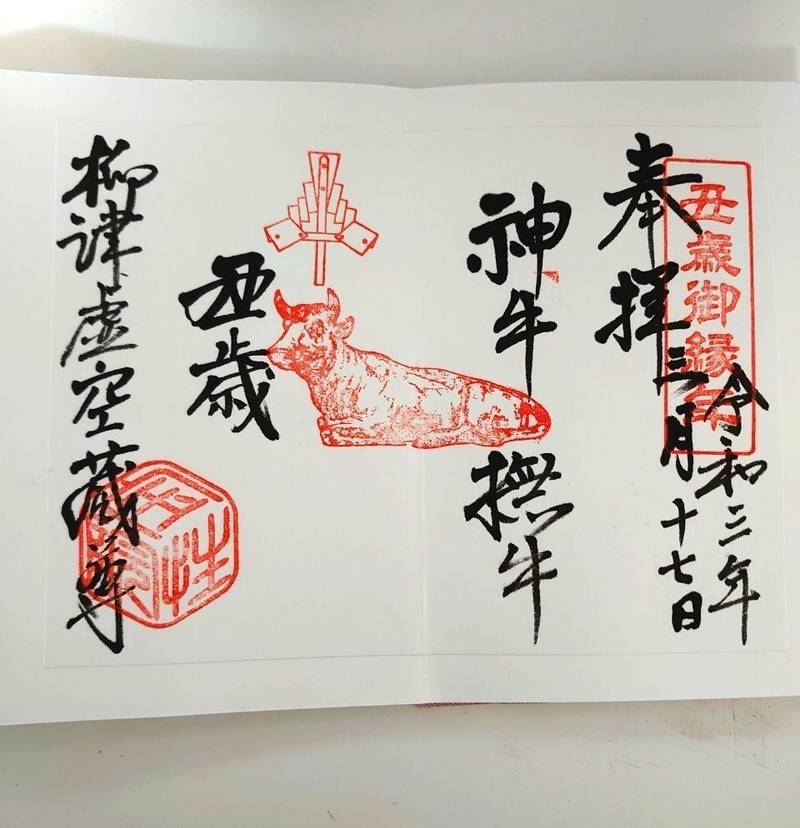 奉拝
丑歳御縁年
令和三年
三月十七日
神牛
撫牛
丑歳
柳津虚空蔵尊
宝性院